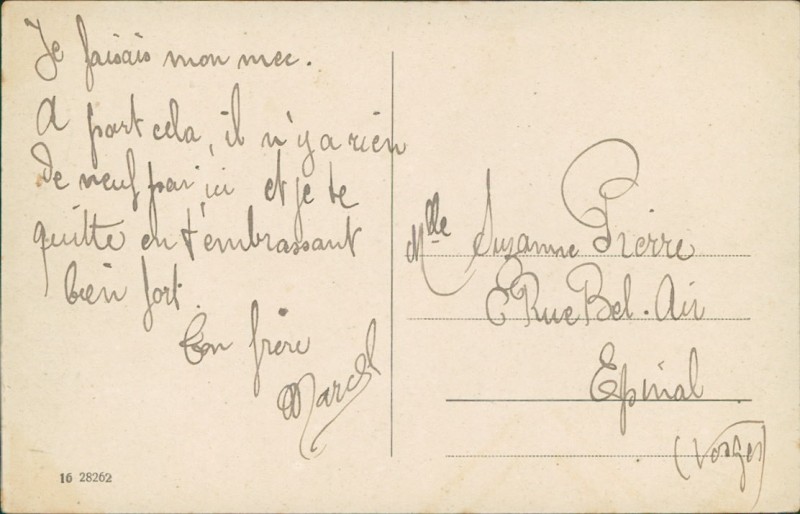 Je faisais mon mec.
A part cela, il n'y a rien
de neuf par ici et je te
quitte en t'embrassant
bien fort.
Ton frère
Marcel
Mlle Suzanne Pierre
Rue Bel-Air
Epinal
(Vosges)
16 28262